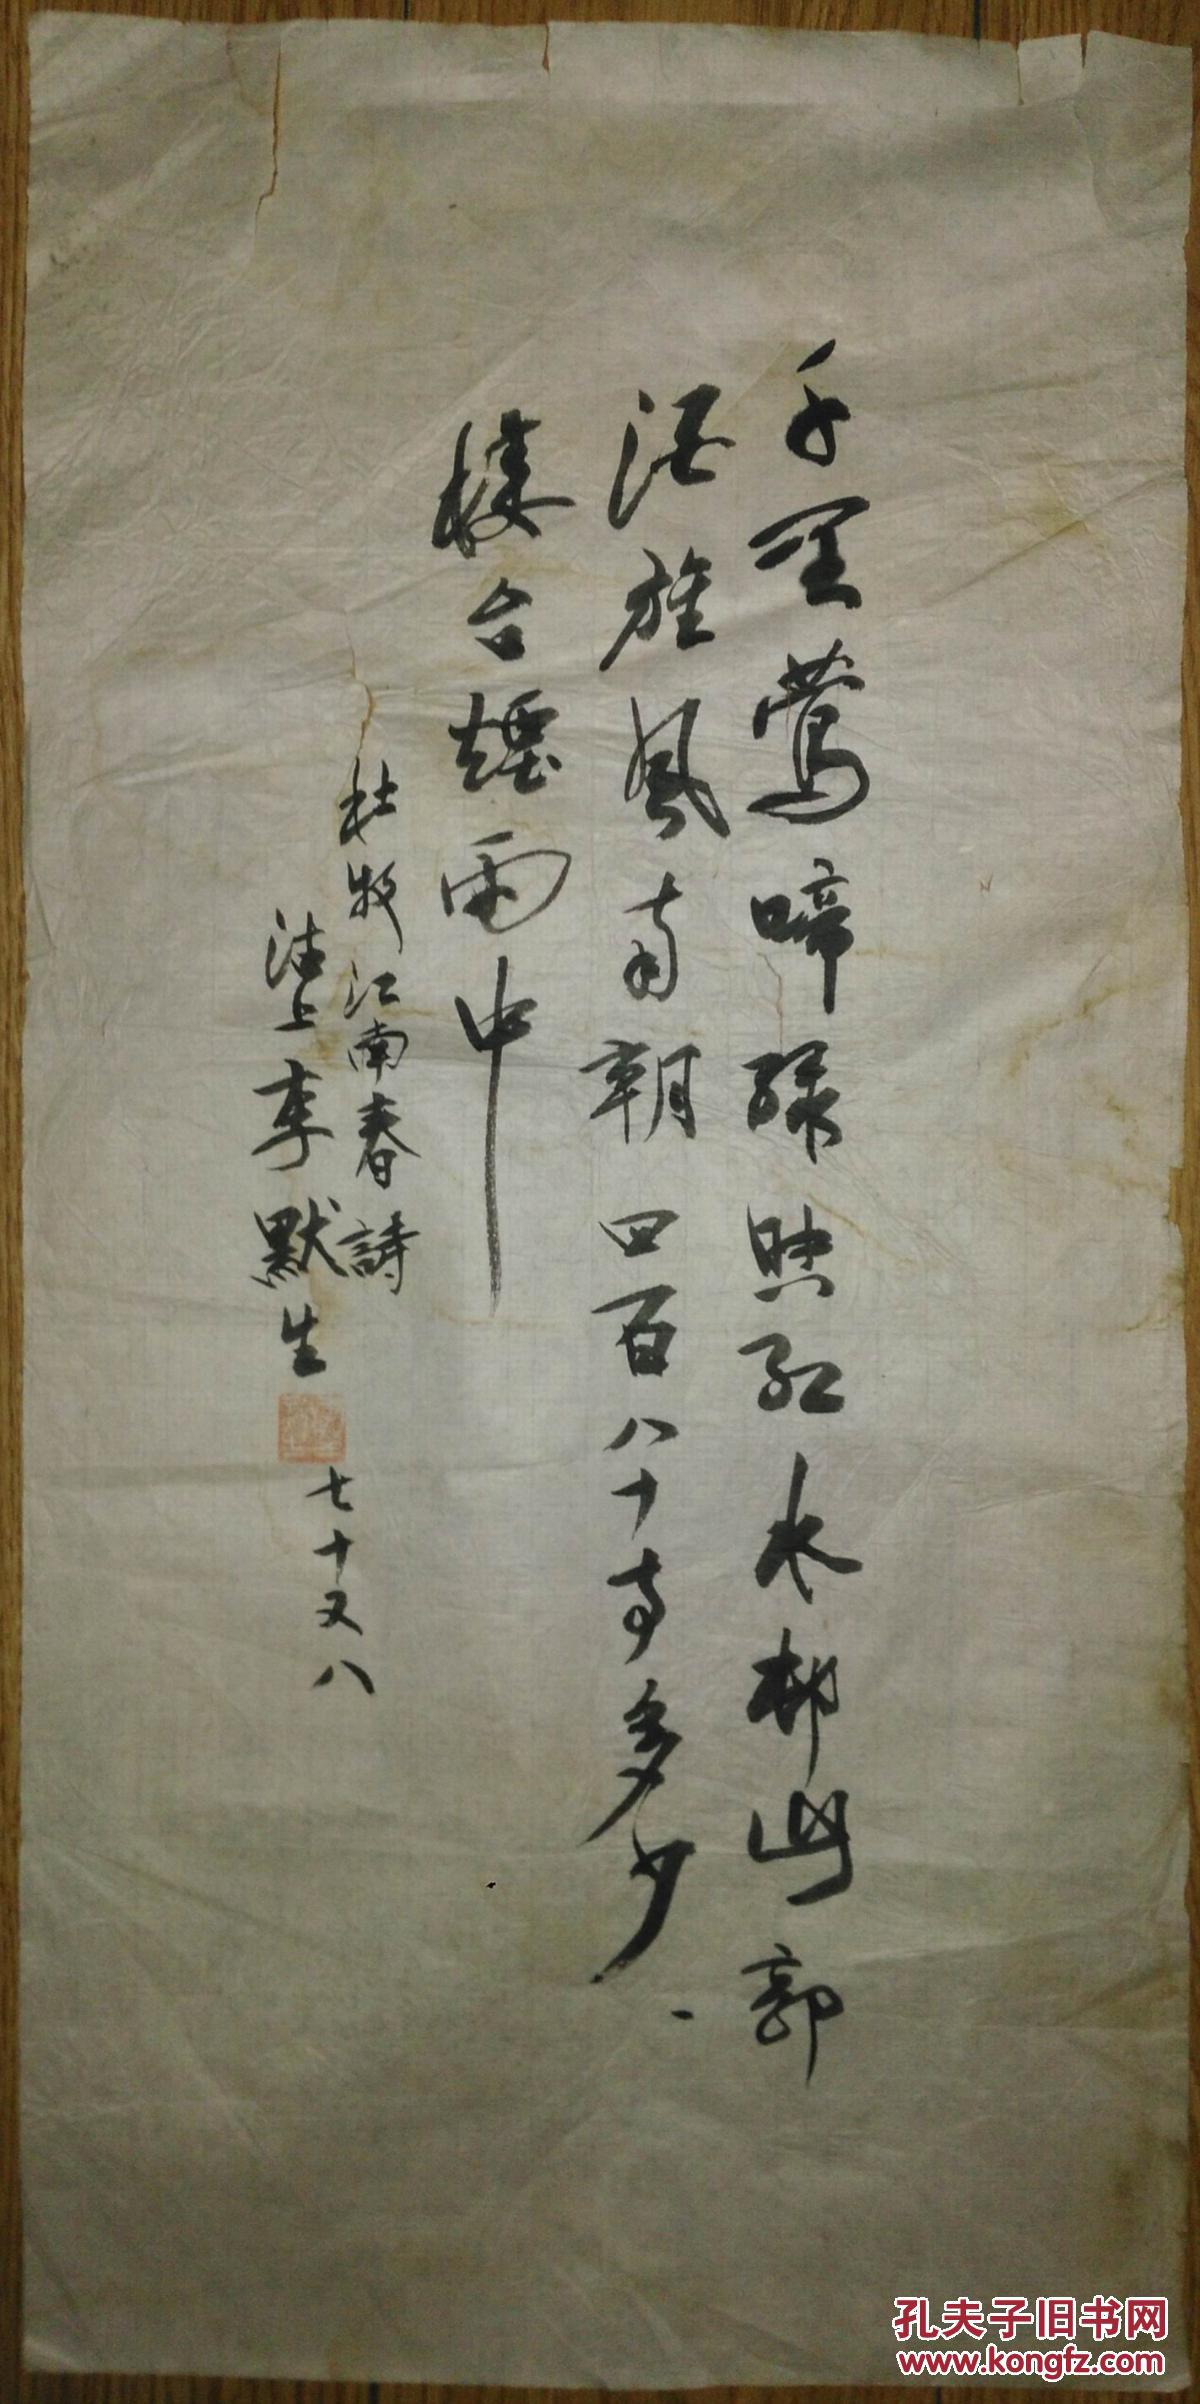 千里莺啼绿映红水邨山郭
酒旗风南朝四百八十寺多少
楼台煙雨中
杜牧江南春詩
李默生
七十又八
孔夫子旧书网
www.kongfz.com